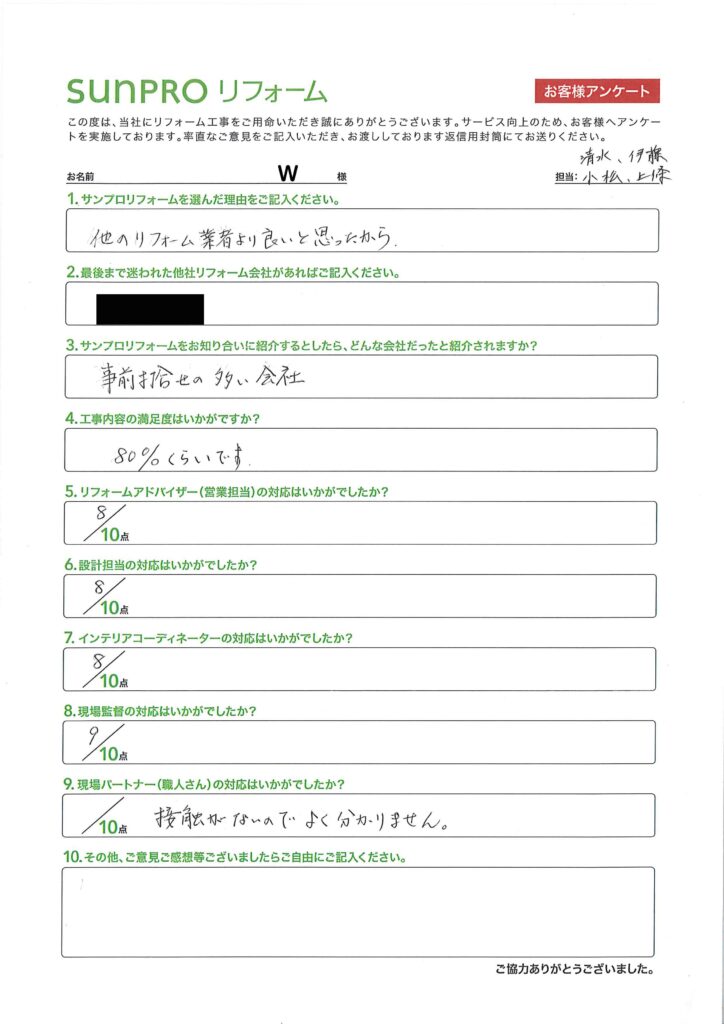 SUNPRO リフォーム
お客様アンケート
この度は、当社にリフォーム工事をご用命いただき誠にありがとうございます。サービス向上のため、お客様へアンケー
トを実施しております。率直なご意見をご記入いただき、お渡ししております返信用封筒にてお送りください。
清水、伊藤
お名前 W 様 担当: 小松、上條
1.サンプロリフォームを選んだ理由をご記入ください。
他のリフォーム業者より良いと思ったから.
2.最後まで迷われた他社リフォーム会社があればご記入ください。
3.サンプロリフォームをお知り合いに紹介するとしたら、どんな会社だったと紹介されますか?
事前打合せの多い会社
4.工事内容の満足度はいかがですか?
80%くらいです.
5.リフォームアドバイザー(営業担当)の対応はいかがでしたか?
8/10点
6.設計担当の対応はいかがでしたか?
8/10点
7.インテリアコーディネーターの対応はいかがでしたか?
8/10点
8.現場監督の対応はいかがでしたか?
9/10点
9.現場パートナー(職人さん)の対応はいかがでしたか?
/10点 接触がないのでよく分かりません。
10.その他、ご意見ご感想等ございましたらご自由にご記入ください。
ご協力ありがとうございました。